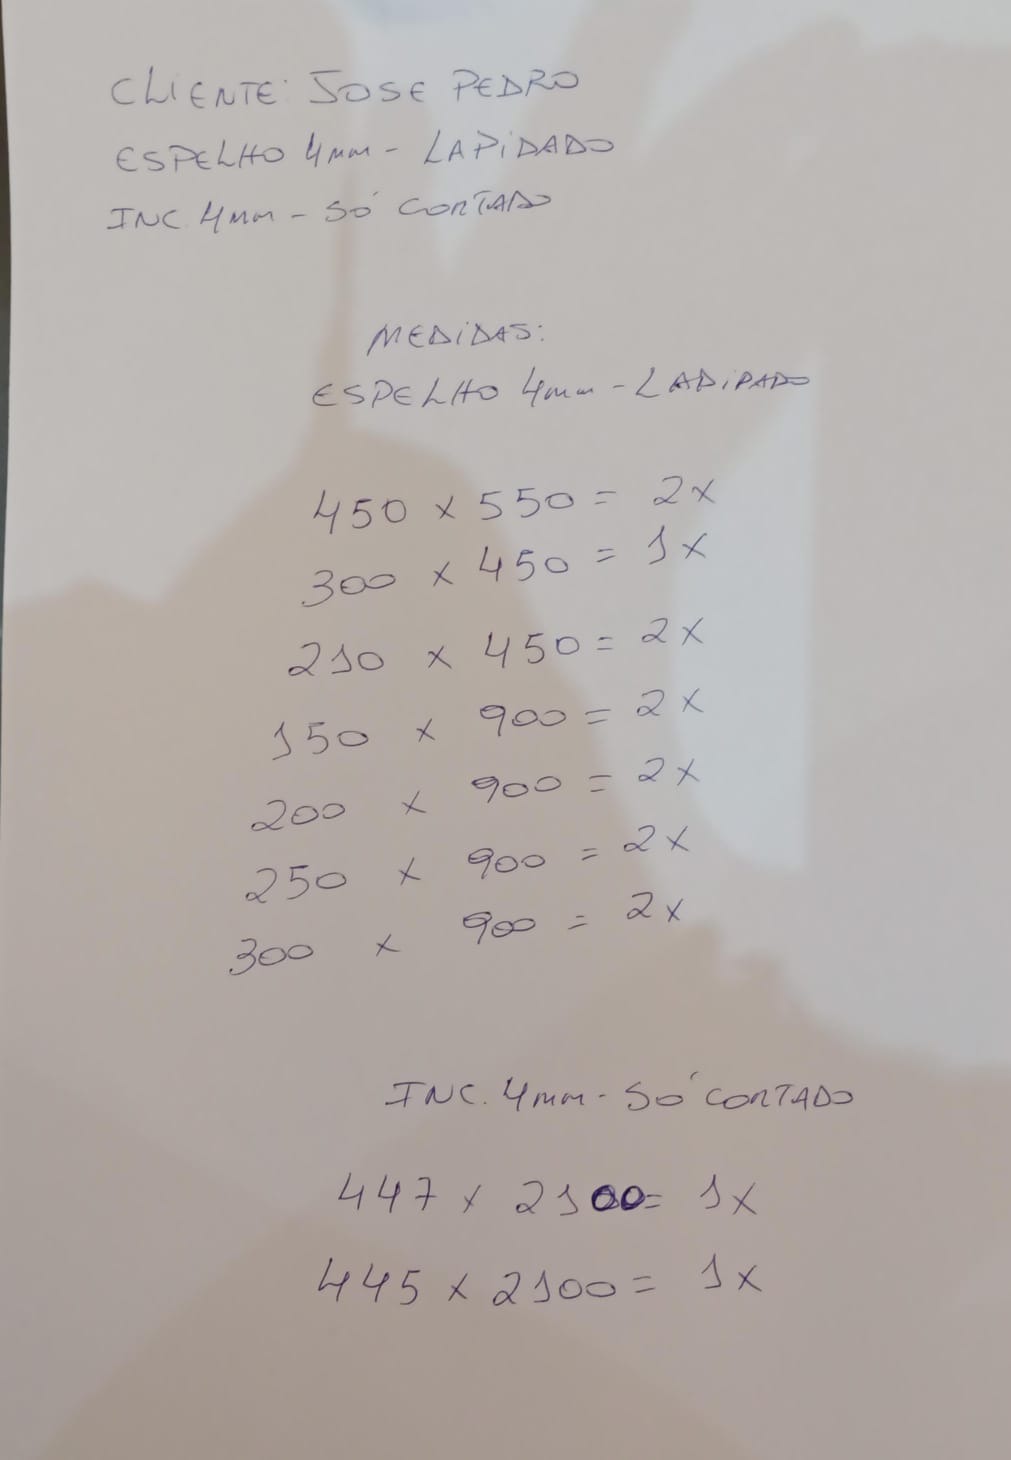 CLIENTE: JOSE PEDRO
ESPELHO 4mm - LAPIDADO
INC. 4mm - SÓ CORTADO
MEDIDAS:
ESPELHO 4mm - LADIPADO
450 x 550 = 2x
300 x 450 = 1x
210 x 450 = 2x
150 x 900 = 2x
200 x 900 = 2x
250 x 900 = 2x
300 x 900 = 2x
INC. 4mm - SÓ CORTADO
447 x 2100 = 1x
445 x 2100 = 1x